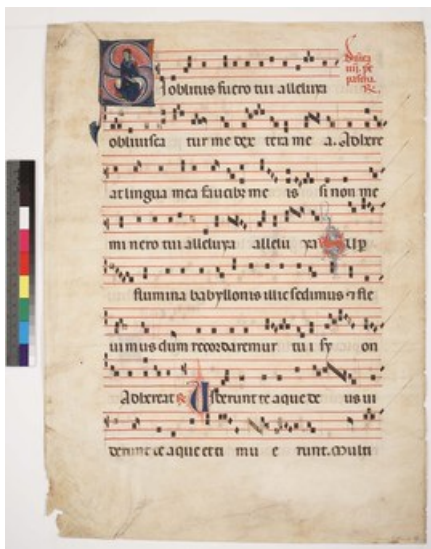 Si oblitus fuero tui alleluya
obliviscatur me dextera mea. Adhere
at lingua mea faucibus me is si non me
mi nero tui alleluya allelu ya Sup
flumina babyllonis illic sedimus et fle
vimus dum recordaremur tui syon
Adhereat Viderunt te aque deus vi
derunt te aque et ti mu e runt. Multi